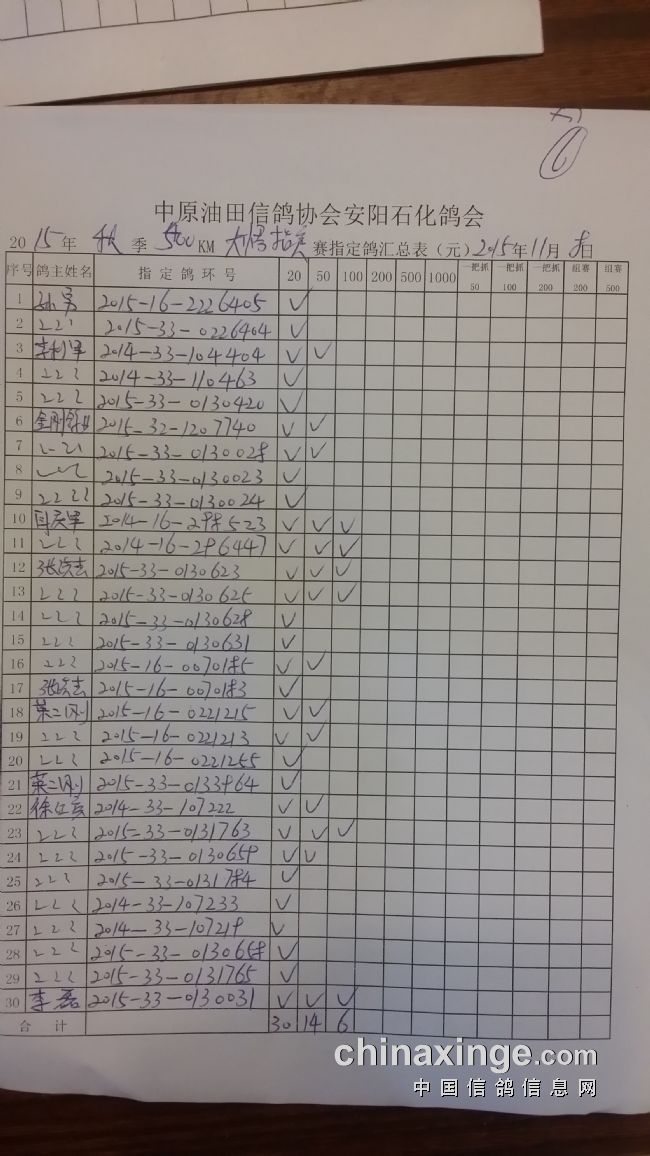 6
中原油田信鸽协会安阳石化鸽会
2015年 秋 季 500KM 大悟指定 赛指定鸽汇总表（元）2015年11月8日
序号 鸽主姓名 指定鸽环号 20 50 100 200 500 1000 一把抓50 一把抓100 一把抓200 组赛200 组赛500
1 孙勇 2015-16-2226405 ✓
2 〃 2015-33-0226404 ✓
3 李利军 2014-33-104404 ✓ ✓
4 〃 2014-33-110463 ✓
5 〃 2015-33-0130420 ✓
6 2015-32-1207740 ✓ ✓
7 〃 2015-33-0130028 ✓ ✓
8 〃 2015-33-0130023 ✓
9 〃 2015-33-0130024 ✓
10 2014-16-298523 ✓ ✓ ✓
11 〃 2014-16-296447 ✓ ✓ ✓
12 2015-33-0130623 ✓ ✓ ✓
13 〃 2015-33-0130625 ✓ ✓ ✓
14 〃 2015-33-0130628 ✓
15 〃 2015-33-0130631 ✓
16 〃 2015-16-0070185 ✓ ✓
17 2015-16-0070183 ✓
18 2015-16-0221215 ✓ ✓
19 〃 2015-16-0221213 ✓ ✓
20 〃 2015-16-0221255 ✓
21 2015-33-0133964 ✓
22 2014-33-107222 ✓ ✓
23 〃 2015-33-0131763 ✓ ✓ ✓
24 〃 2015-33-0130659 ✓ ✓
25 〃 2015-33-0131784 ✓
26 〃 2014-33-107233 ✓
27 〃 2014-33-107219 ✓
28 〃 2015-33-0130658 ✓
29 〃 2015-33-0131765 ✓
30 李磊 2015-33-0130031 ✓ ✓ ✓
合计 30 14 6
chinaxinge.com
中国信鸽信息网